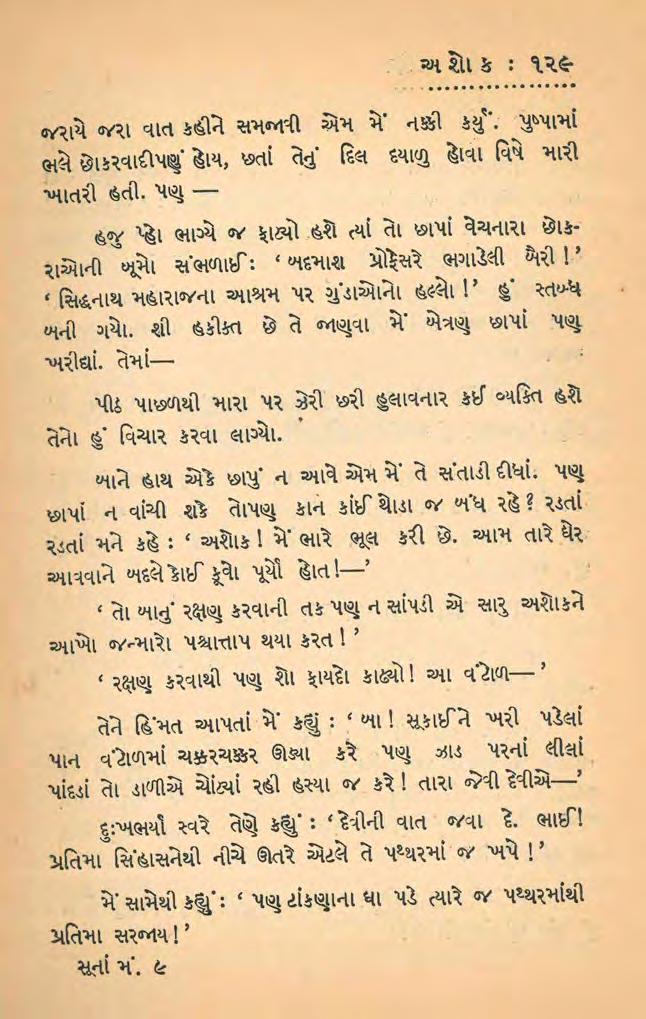 અશોક : ૧૨૯
જરાયે જરા વાત કહીને સમજાવી એમ મેં નક્કી કર્યું. પુષ્પામાં
ભલે છોકરવાદીપણું હોય, છતાં તેનું દિલ દયાળુ હોવા વિષે મારી
ખાતરી હતી. પણ —
હજુ પ્હો ભાગ્યે જ ફાટ્યો હશે ત્યાં તો છાપાં વેચનારા છોક-
રાઓની બૂમો સંભળાઈ : ‘ બદમાશ પ્રોફેસરે ભગાડેલી બૈરી ! ’
‘ સિદ્ધનાથ મહારાજના આશ્રમ પર ગુંડાઓનો હલ્લો ! ’ હું સ્તબ્ધ
બની ગયો. શી હકીકત છે તે જાણવા મેં બેત્રણ છાપાં પણ
ખરીદ્યાં. તેમાં—
પીઠ પાછળથી મારા પર ઝેરી છરી હુલાવનાર કઈ વ્યક્તિ હશે
તેનો હું વિચાર કરવા લાગ્યો.
બાને હાથ એકે છાપું ન આવે એમ મેં તે સંતાડી દીધાં. પણ
છાપાં ન વાંચી શકે તોપણ કાન કાંઈ થોડા જ બંધ રહે ? રડતાં
રડતાં મને કહે : ‘ અશોક ! મેં ભારે ભૂલ કરી છે. આમ તારે ઘેર
આવવાને બદલે કોઈ કૂવો પૂર્યો હોત !—’
‘ તો બાનું રક્ષણ કરવાની તક પણ ન સાંપડી એ સારુ અશોકને
આખો જન્મારો પશ્ચાત્તાપ થયા કરત ! ’
‘ રક્ષણ કરવાથી પણ શો ફાયદો કાઢ્યો! આ વંટોળ— ’
તેને હિંમત આપતાં મેં કહ્યું : ‘ બા ! સૂકાઈને ખરી પડેલાં
પાન વંટોળમાં ચક્કરચક્કર ઊડ્યા કરે પણ ઝાડ પરનાં લીલાં
પાંદડાં તો ડાળીએ ચોંટ્યાં રહી હસ્યા જ કરે ! તારા જેવી દેવીએ—’
દુઃખભર્યા સ્વરે તેણે કહ્યું : ‘ દેવીની વાત જવા દે. ભાઈ!
પ્રતિમા સિંહાસનેથી નીચે ઊતરે એટલે તે પથ્થરમાં જ ખપે ! ’
મેં સામેથી કહ્યું : ‘ પણ ટાંકણાના ઘા પડે ત્યારે જ પથ્થરમાંથી
પ્રતિમા સરજાય ! ’
સૂનાં મં. ૯